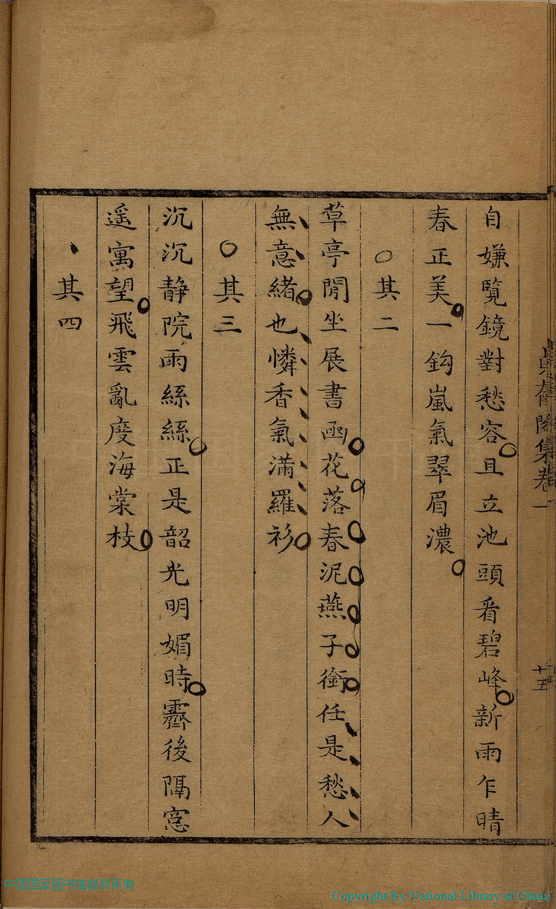 自嫌覧鏡對愁容且立池頭看碧峰新雨乍晴
春正美一鈎嵐氣翠眉濃
其二
草亭閒坐展書函花落春泥燕子銜任是愁人
無意緒也憐香氣滿羅衫
其三
沉沉静院雨絲絲正是韶光明媚時霽後隔窓
遥寓望飛雲亂度海棠枝
其四
集卷一
十五
Copyright By National Library of China